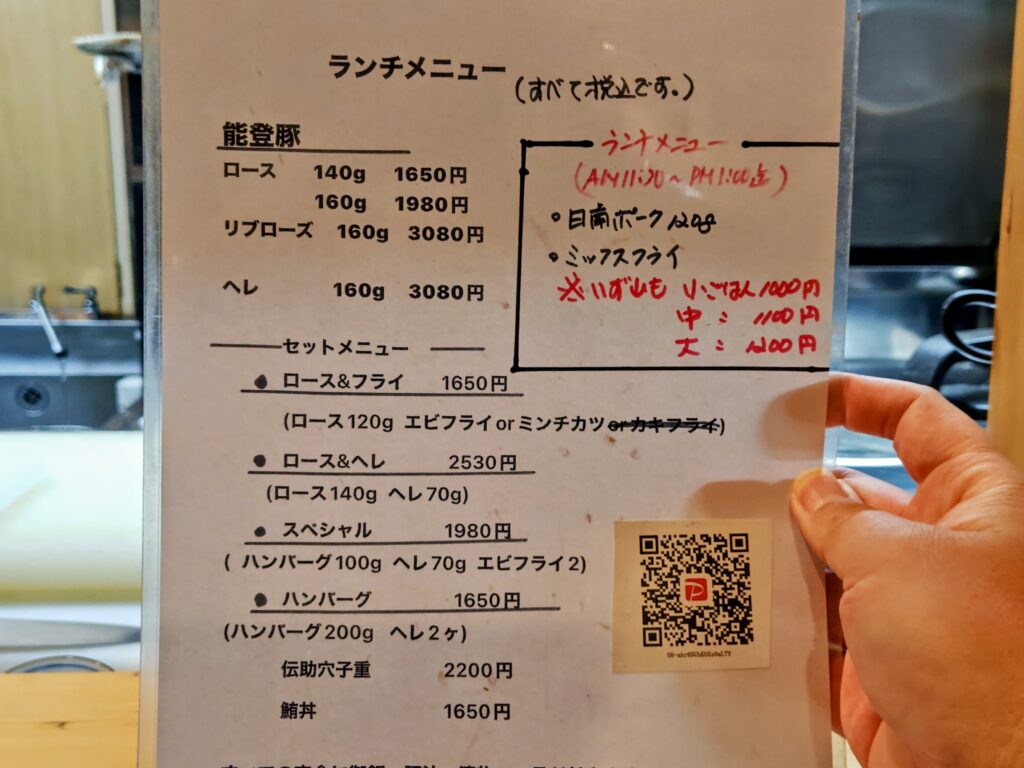 ランチメニュー
(すべて税込です。)
能登豚
ロース 140g 1650円
160g 1980円
リブロース 160g 3080円
ヘレ 160g 3080円
ランチメニュー
(AM11:30~PM1:00迄)
・日南ポーク120g
・ミックスフライ
※いずれも 小ごはん1000円
中 : 1100円
大 : 1200円
セットメニュー
● ロース&フライ 1650円
(ロース120g エビフライorミンチカツorカキフライ)
● ロース&ヘレ 2530円
(ロース140g ヘレ70g)
● スペシャル 1980円
( ハンバーグ100g ヘレ70g エビフライ2)
● ハンバーグ 1650円
(ハンバーグ200g ヘレ2ヶ)
伝助穴子重 2200円
鮪丼 1650円